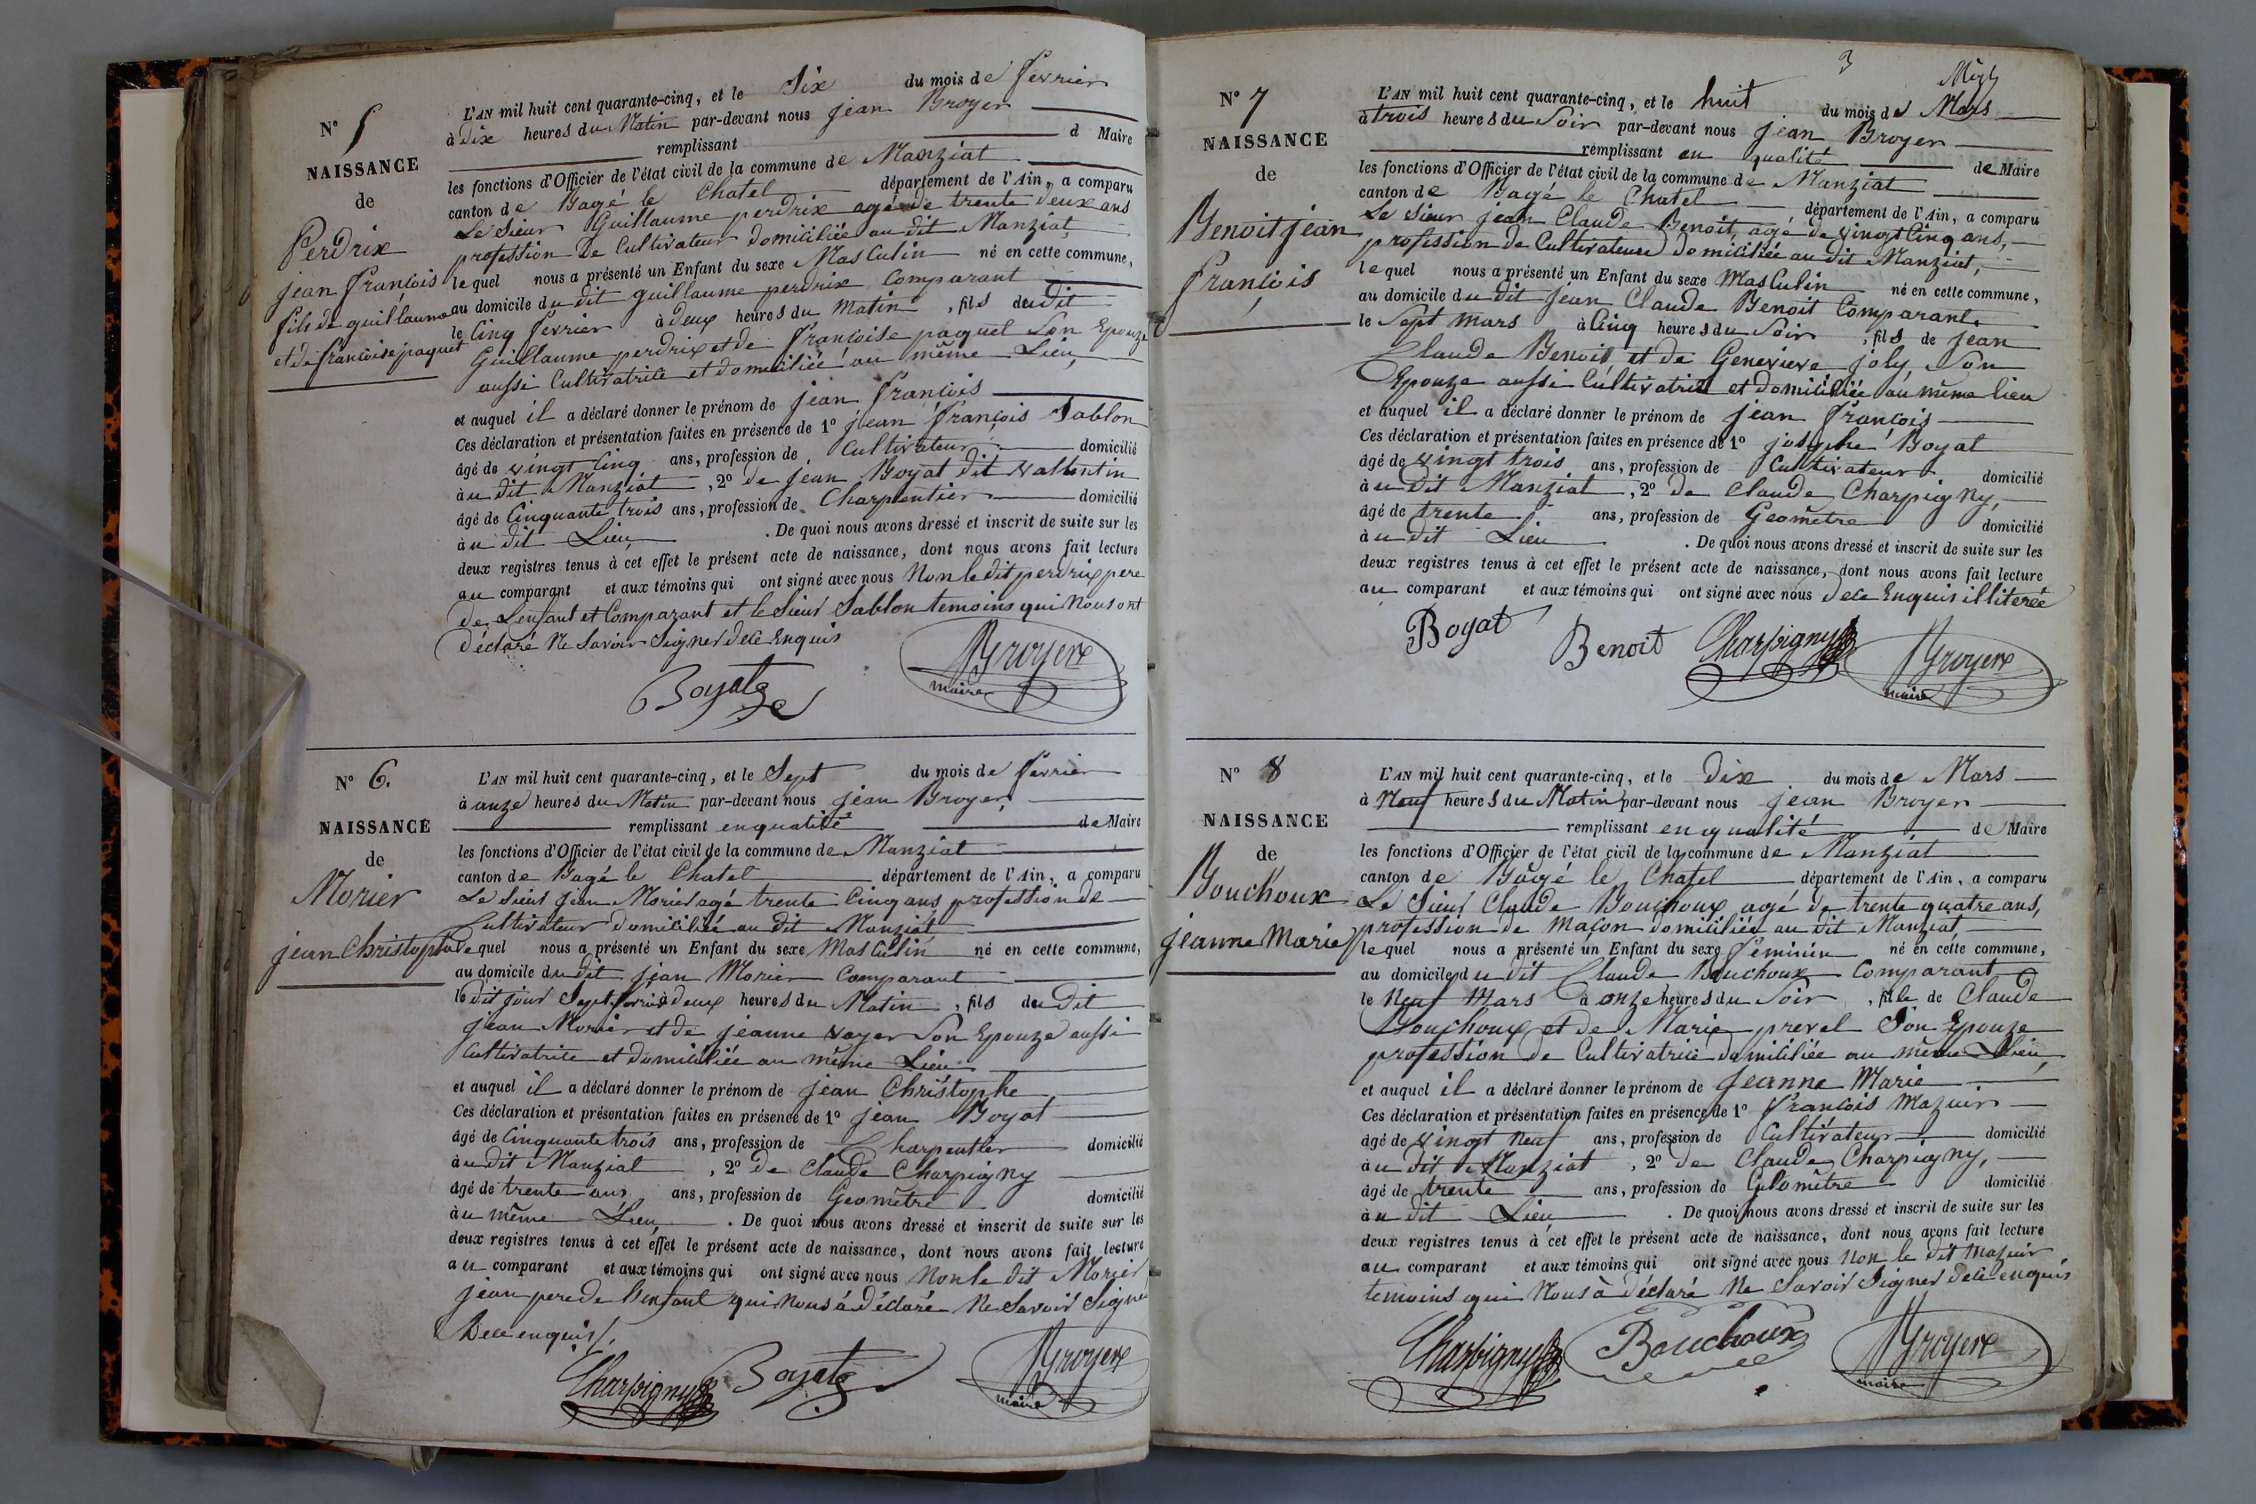 N° 5
NAISSANCE
de
Perdrix
jean françois
fils de guillaume
et de francoise paquet
L'AN mil huit cent quarante-cinq, et le Six du mois de fevrier
à dix heures du Matin par-devant nous jean Broyer
remplissant d Maire
les fonctions d'Officier de l'état civil de la commune de Manziat
canton de Bagé le Chatel département de l'Ain, a comparu
Le Sieur Guillaume perdrix agé de trente deux ans
profession De Cultivateur domiciliée au dit Manziat
lequel nous a présenté un Enfant du sexe Masculin né en cette commune,
au domicile du dit guillaume perdrix Comparant
le Cinq fevrier à deux heures du matin, fils du dit
Guillaume perdrix et de francoise paquet Son Epouze
aussi Cultivatrice et domiciliée au même Lieu
et auquel il a déclaré donner le prénom de jean françois
Ces déclaration et présentation faites en présence de 1° jean françois Sablon
âgé de vingt Cinq ans, profession de Cultivateur domicilié
à u dit Manziat, 2° de jean Boyat dit Vallentin
âgé de Cinquante trois ans, profession de Charpentier domicilié
à u dit Lieu. De quoi nous avons dressé et inscrit de suite sur les
deux registres tenus à cet effet le présent acte de naissance, dont nous avons fait lecture
au comparant et aux témoins qui ont signé avec nous Non le dit perdrix pere
de Lenfant et Comparant et le Sieur Sablon temoins qui Nous ont
déclaré Ne Savoir Signer de ce Enquis
Boyat
Broyer
maire
N° 6.
NAISSANCE
de
Morier
jean Christophe
L'AN mil huit cent quarante-cinq, et le Sept du mois de fevrier
à onze heures du Matin par-devant nous jean Broyer
remplissant en qualité de Maire
les fonctions d'Officier de l'état civil de la commune de Manziat
canton de Bagé le Chatel département de l'Ain, a comparu
Le Sieur jean Morier agé trente Cinq ans profession de
Cultivateur domiciliée au dit Manziat
lequel nous a présenté un Enfant du sexe Masculin né en cette commune,
au domicile du dit jean Morier Comparant
le dit jour Sept fevrier à deux heures du Matin, fils du dit
jean Morier et de jeanne Voyer Son Epouze aussi
Cultivatrice et domiciliée au même Lieu
et auquel il a déclaré donner le prénom de jean Christophe
Ces déclaration et présentation faites en présence de 1° jean Boyat
âgé de Cinquante trois ans, profession de Charpentier domicilié
à u dit Manziat, 2° de Claude Charpigny
âgé de trente ans ans, profession de Geomêtre domicilié
à u même Lieu. De quoi nous avons dressé et inscrit de suite sur les
deux registres tenus à cet effet le présent acte de naissance, dont nous avons fait lecture
au comparant et aux témoins qui ont signé avec nous Non le dit Morier
jean pere de Lenfant qui Nous á déclaré Ne Savoir Signer
De ce enquis
Charpigny
Boyat
Broyer
maire
3
N° 7
NAISSANCE
de
Benoit jean
françois
L'AN mil huit cent quarante-cinq, et le huit du mois de Mars
à trois heures du Soir par-devant nous jean Broyer
remplissant en qualité de Maire
les fonctions d'Officier de l'état civil de la commune de Manziat
canton de Bagé le Chatel département de l'Ain, a comparu
Le Sieur jean Claude Benoit, agé de vingt Cinq ans,
profession de Cultivateur domiciliée au dit Manziat,
lequel nous a présenté un Enfant du sexe Masculin né en cette commune,
au domicile du dit jean Claude Benoit Comparant
le Sept mars à Cinq heures du Soir, fils de jean
Claude Benoit et de Genevieve joly, Son
Epouze aussi Cultivatrice et domiciliée au même lieu
et auquel il a déclaré donner le prénom de jean françois
Ces déclaration et présentation faites en présence de 1° josephe Boyat
âgé de vingt trois ans, profession de Cultivateur domicilié
à u dit Manziat, 2° de Claude Charpigny,
âgé de trente ans, profession de Geomêtre domicilié
à u dit Lieu. De quoi nous avons dressé et inscrit de suite sur les
deux registres tenus à cet effet le présent acte de naissance, dont nous avons fait lecture
au comparant et aux témoins qui ont signé avec nous de ce Enquis illiterée
Boyat
Benoit
Charpigny
Broyer
maire
N° 8
NAISSANCE
de
Bouchoux
jeanne Marie
L'AN mil huit cent quarante-cinq, et le Dix du mois de Mars
à Neuf heures du Matin par-devant nous jean Broyer
remplissant en qualité de Maire
les fonctions d'Officier de l'état civil de la commune de Manziat
canton de Bâgé le Chatel département de l'Ain, a comparu
Le Sieur Claude Bouchoux agé de trente quatre ans,
profession de Maçon domiciliée au dit Manziat,
lequel nous a présenté un Enfant du sexe féminin né en cette commune,
au domicile du dit Claude Bouchoux Comparant
le Neuf Mars à onze heures du Soir, fille de Claude
Bouchoux et de Marie prevel Son Epouze
profession de Cultivatrice domiciliée au même Lieu
et auquel il a déclaré donner le prénom de Jeanne Marie
Ces déclaration et présentation faites en présence de 1° François Mazuir
âgé de vingt Neuf ans, profession de Cultivateur domicilié
à u dit Manziat, 2° de Claude Charpigny,
âgé de trente ans, profession de Géomêtre domicilié
à u dit Lieu. De quoi nous avons dressé et inscrit de suite sur les
deux registres tenus à cet effet le présent acte de naissance, dont nous avons fait lecture
au comparant et aux témoins qui ont signé avec nous non le dit Mazuir
temoins qui Nous à déclaré Ne Savoir Signer de ce enquis
Charpigny
Bouchoux
Broyer
maire